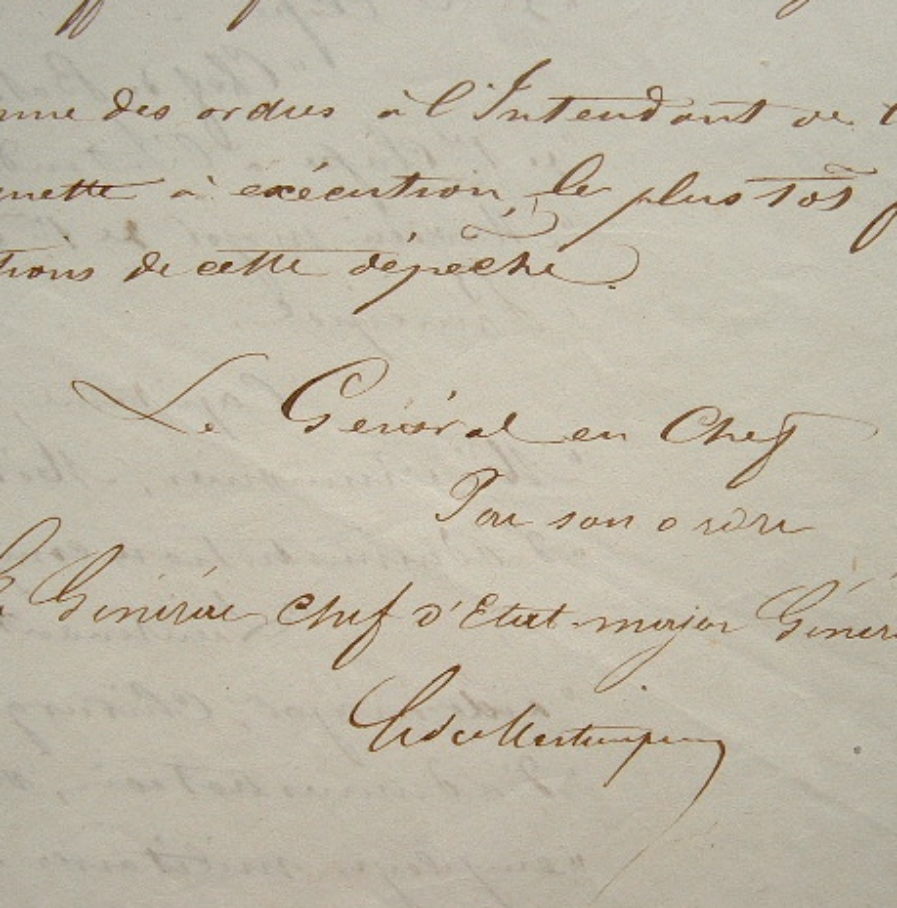 nne des ordres à l'Intendant de
mette à exécution, le plus tôt
tions de cette dépêche.
Le Général en Chef
Par son ordre
Le Général Chef d'Etat-major Généra